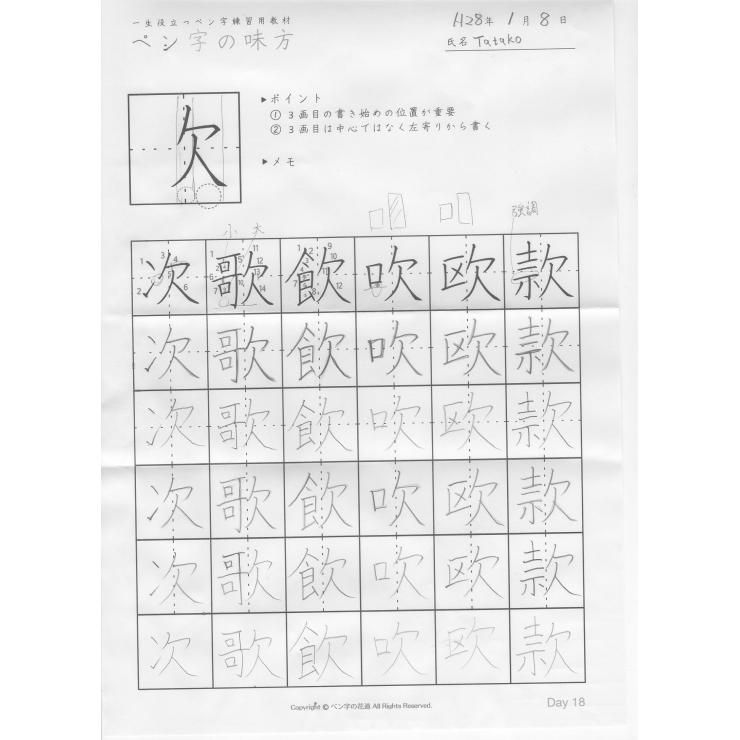 一生役立つペン字練習用教材
ペン字の味方
H28年 1月 8日
氏名 Tatako
欠
▶ポイント
① 3画目の書き始めの位置が重要
② 3画目は中心ではなく左寄りから書く
▶メモ
小 大 強調
次 歌 飲 吹 欧 款
次 歌 飲 吹 欧 款
次 歌 飲 吹 欧 款
次 歌 飲 吹 欧 款
次 歌 飲 吹 欧 款
次 歌 飲 吹 欧 款
Copyright © ペン字の花道 All Rights Reserved.
Day 18